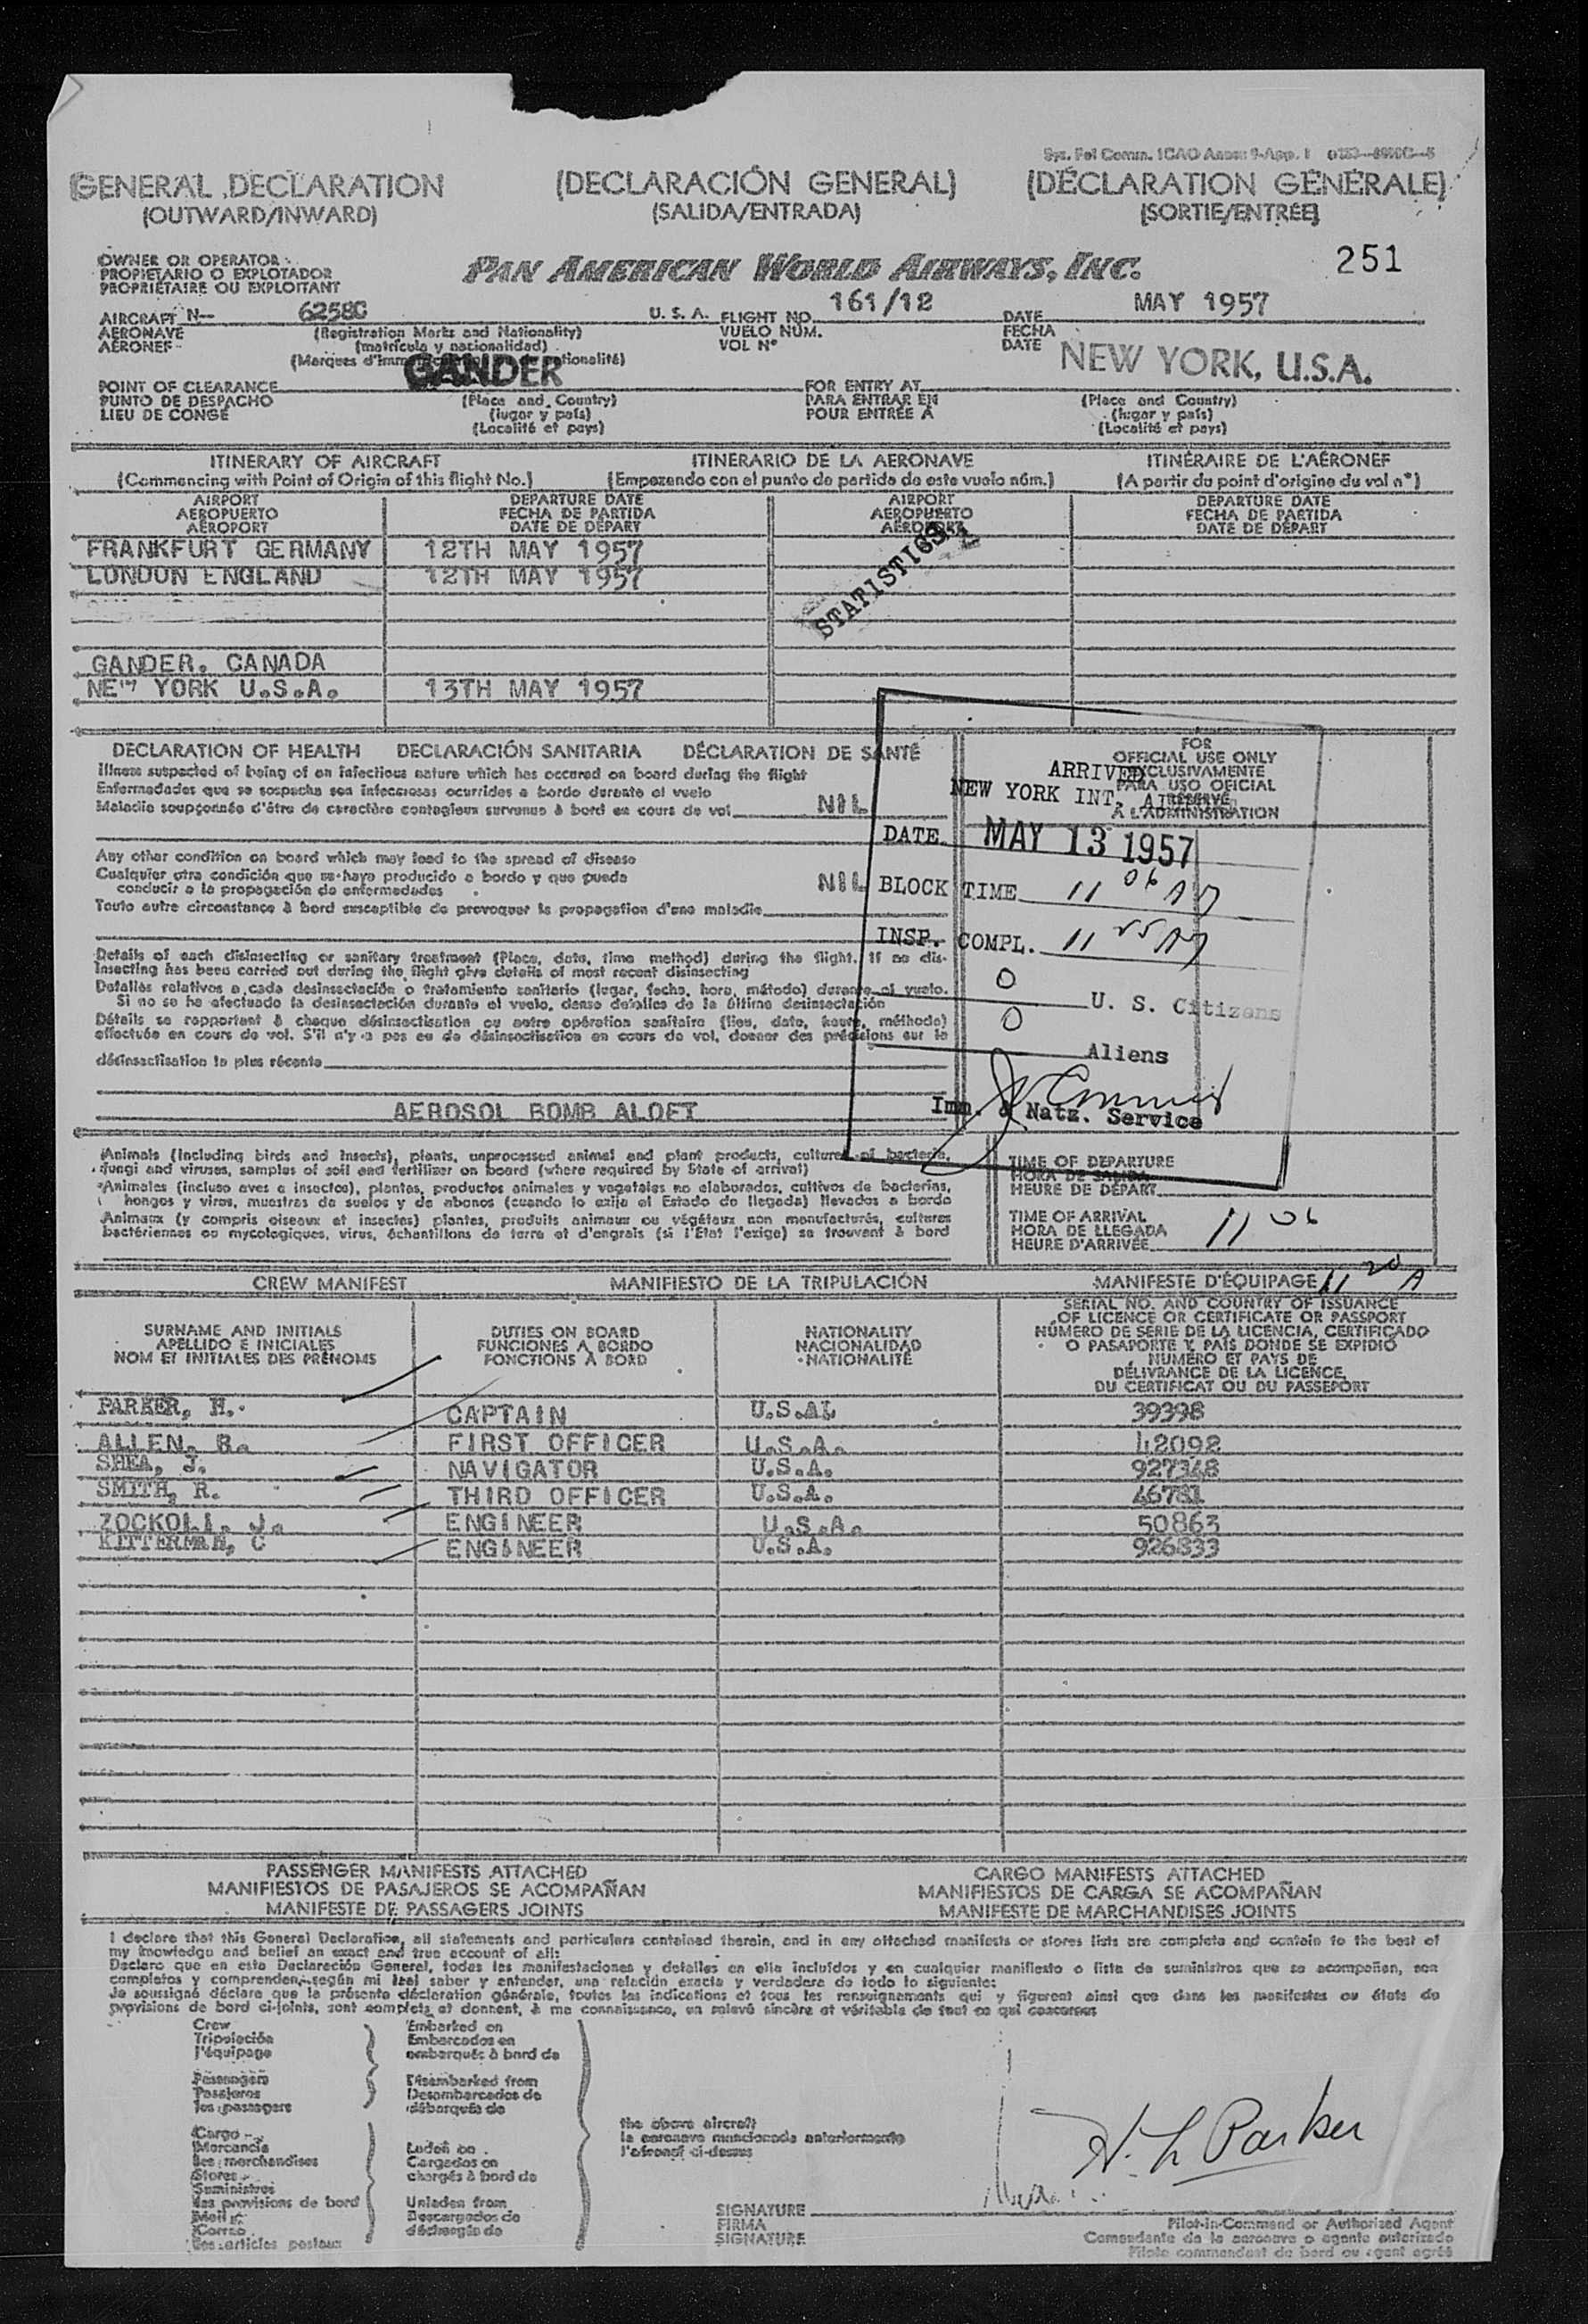 GENERAL DECLARATION (DECLARACIÓN GENERAL) (DÉCLARATION GÉNÉRALE)
(OUTWARD/INWARD) (SALIDA/ENTRADA) (SORTIE/ENTRÉE)
OWNER OR OPERATOR
PROPIETARIO O EXPLOTADOR
PROPRIÉTAIRE OU EXPLOITANT
PAN AMERICAN WORLD AIRWAYS, INC.
251
AIRCRAFT N— 6258C U. S. A. FLIGHT NO. 161/12 DATE MAY 1957
AERONAVE (Registration Marks and Nationality) VUELO NÚM. FECHA
AÉRONEF (matrícula y nacionalidad) VOL Nº DATE
GANDER
NEW YORK, U.S.A.
POINT OF CLEARANCE (Place and Country) FOR ENTRY AT (Place and Country)
PUNTO DE DESPACHO (lugar y país) PARA ENTRAR EN (lugar y país)
LIEU DE CONGÉ (Localité et pays) POUR ENTRÉE À (Localité et pays)
ITINERARY OF AIRCRAFT ITINERARIO DE LA AERONAVE ITINÉRAIRE DE L'AÉRONEF
(Commencing with Point of Origin of this flight No.) (Empezando con el punto de partida de este vuelo núm.) (A partir du point d'origine du vol nº)
AIRPORT DEPARTURE DATE AIRPORT DEPARTURE DATE
AEROPUERTO FECHA DE PARTIDA AEROPUERTO FECHA DE PARTIDA
AÉROPORT DATE DE DÉPART AÉROPORT DATE DE DÉPART
FRANKFURT GERMANY 12TH MAY 1957
LONDON ENGLAND 12TH MAY 1957
STATISTICS
GANDER. CANADA
NEW YORK U.S.A. 13TH MAY 1957
DECLARATION OF HEALTH DECLARACIÓN SANITARIA DÉCLARATION DE SANTÉ
Illness suspected of being of an infectious nature which has occured on board during the flight
Enfermedades que se sospecha sean infecciosas ocurridas a bordo durante el vuelo
Maladie soupçonnée d'être de caractère contagieux survenue à bord en cours de vol NIL
Any other condition on board which may lead to the spread of disease
Cualquier otra condición que se haya producido a bordo y que pueda
conducir a la propagación de enfermedades NIL
Toute autre circonstance à bord susceptible de provoquer la propagation d'une maladie
Details of each disinsecting or sanitary treatment (Place, date, time method) during the flight. If no dis-
insecting has been carried out during the flight give details of most recent disinsecting
Detalles relativos a cada desinsectación o tratamiento sanitario (lugar, fecha, hora, método) durante el vuelo.
Si no se ha efectuado la desinsectación durante el vuelo, dense detalles de la última desinsectación
Détails se rapportant à chaque désinsectisation ou autre opération sanitaire (lieu, date, heure, méthode)
effectuée en cours de vol. S'il n'y a pas eu de désinsectisation en cours de vol, donner des précisions sur la
désinsectisation la plus récente
AEROSOL BOMB ALOFT
FOR
OFFICIAL USE ONLY
EXCLUSIVAMENTE
PARA USO OFICIAL
RÉSERVÉ
À L'ADMINISTRATION
ARRIVED
NEW YORK INT.
DATE MAY 13 1957
BLOCK TIME 11 06 A
INSP. COMPL. 11 25 A
0 U. S. Citizens
0 Aliens
Imm. & Natz. Service
Animals (including birds and insects), plants, unprocessed animal and plant products, cultures of bacteria,
fungi and viruses, samples of soil and fertilizer on board (where required by State of arrival)
Animales (incluso aves e insectos), plantas, productos animales y vegetales no elaborados, cultivos de bacterias,
hongos y virus, muestras de suelos y de abonos (cuando lo exija el Estado de llegada) llevados a bordo
Animaux (y compris oiseaux et insectes) plantes, produits animaux ou végétaux non manufacturés, cultures
bactériennes ou mycologiques, virus, échantillons de terre et d'engrais (si l'Etat l'exige) se trouvant à bord
TIME OF DEPARTURE
HORA DE SALIDA
HEURE DE DÉPART
TIME OF ARRIVAL
HORA DE LLEGADA
HEURE D'ARRIVÉE 11 06
CREW MANIFEST MANIFIESTO DE LA TRIPULACIÓN MANIFESTE D'ÉQUIPAGE 11 20 A
SURNAME AND INITIALS
APELLIDO E INICIALES
NOM ET INITIALES DES PRÉNOMS
DUTIES ON BOARD
FUNCIONES A BORDO
FONCTIONS À BORD
NATIONALITY
NACIONALIDAD
NATIONALITÉ
SERIAL NO. AND COUNTRY OF ISSUANCE
OF LICENCE OR CERTIFICATE OR PASSPORT
NÚMERO DE SERIE DE LA LICENCIA, CERTIFICADO
O PASAPORTE Y PAÍS DONDE SE EXPIDIÓ
NUMÉRO ET PAYS DE
DÉLIVRANCE DE LA LICENCE,
DU CERTIFICAT OU DU PASSEPORT
PARKER, H. CAPTAIN 39398
ALLEN. R. FIRST OFFICER U.S.A. 42092
SHEA, J. NAVIGATOR U.S.A. 927348
SMITH, R. THIRD OFFICER U.S.A. 46781
ZOCKOLL. J. ENGINEER U.S.A. 50863
KITTERMAN, C ENGINEER U.S.A. 926833
PASSENGER MANIFESTS ATTACHED CARGO MANIFESTS ATTACHED
MANIFIESTOS DE PASAJEROS SE ACOMPAÑAN MANIFIESTOS DE CARGA SE ACOMPAÑAN
MANIFESTE DE PASSAGERS JOINTS MANIFESTE DE MARCHANDISES JOINTS
I declare that this General Declaration, all statements and particulars contained therein, and in any attached manifests or stores lists are complete and contain to the best of
my knowledge and belief an exact and true account of all:
Declaro que en esta Declaración General, todas las manifestaciones y detalles en ella incluídos y en cualquier manifiesto o lista de suministros que se acompañan, son
completos y comprenden, según mi leal saber y entender, una relación exacta y verdadera de todo lo siguiente:
Je soussigné déclare que la présente déclaration générale, toutes les indications et tous les renseignements qui y figurent ainsi que dans les manifestes ou états de
provisions de bord ci-joints, sont complets et donnent, à ma connaissance, un relevé sincère et véritable de tout ce qui concerne:
Crew
Tripulación
l'équipage
Passengers
Pasajeros
les passagers
Cargo
Mercancía
les marchandises
Stores
Suministros
les provisions de bord
Mail
Correo
les articles postaux
Embarked on
Embarcados en
embarqués à bord de
Disembarked from
Desembarcados de
débarqués de
Laden on
Cargados en
chargés à bord de
Unladen from
Descargados de
déchargés de
the above aircraft
la aeronave mencionada anteriormente
l'aéronef ci-dessus
H. L Parker
SIGNATURE
FIRMA
SIGNATURE
Pilot-in-Command or Authorized Agent
Comandante de la aeronave o agente autorizado
Pilote commandant de bord ou agent agréé